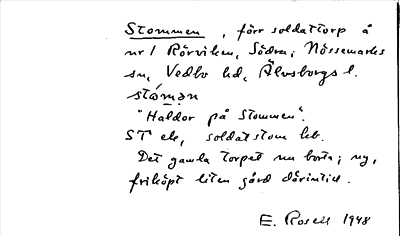 Stommen, förr soldattorp å
nr 1 Rörviken, Södra; Nössemarks
sn, Vedbo hd, Älvsborgs l.
stómən
"Haldor på Stommen".
ST ek, soldatstom hb.
Det gamla torpet nu borta; ny,
friköpt liten gård därintill.
E. Rosell 1948